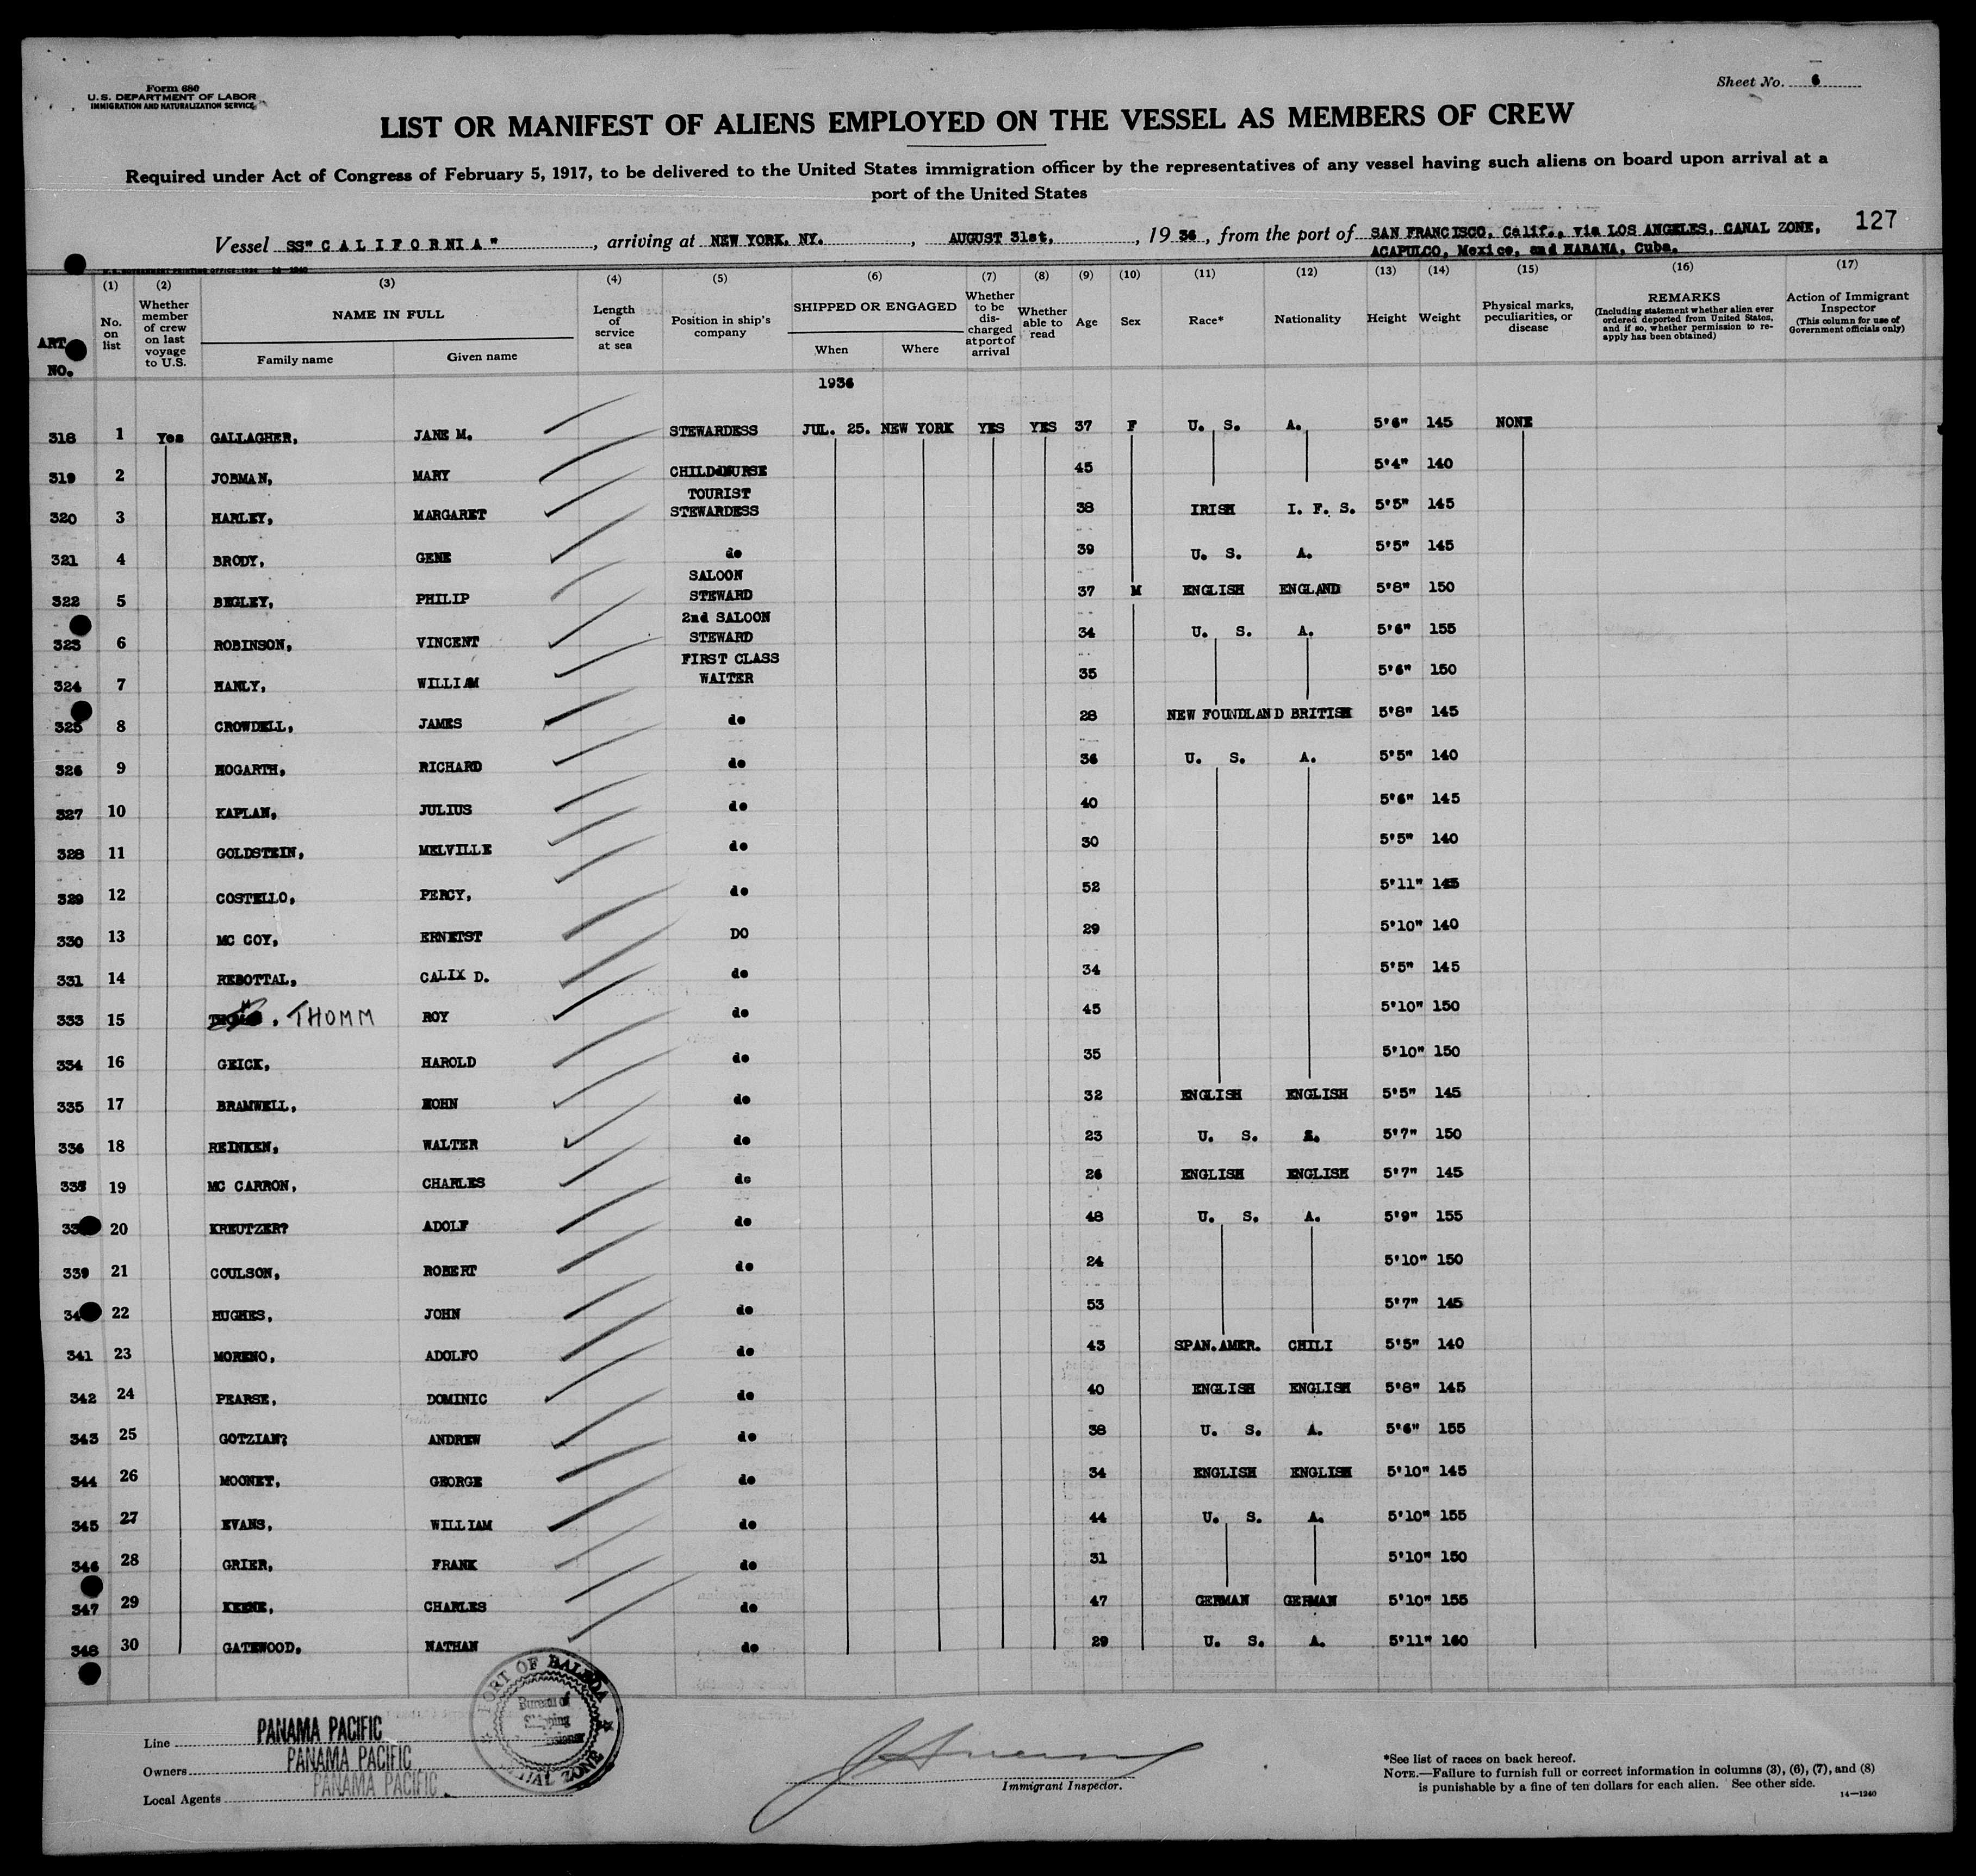 Form 680
U.S. DEPARTMENT OF LABOR
IMMIGRATION AND NATURALIZATION SERVICE
Sheet No. 6
LIST OR MANIFEST OF ALIENS EMPLOYED ON THE VESSEL AS MEMBERS OF CREW
Required under Act of Congress of February 5, 1917, to be delivered to the United States immigration officer by the representatives of any vessel having such aliens on board upon arrival at a
port of the United States
127
Vessel SS" C A L I F O R N I A ", arriving at NEW YORK. NY., AUGUST 31st, , 19 36, from the port of SAN FRANCISCO, Calif., via LOS ANGELES, CANAL ZONE,
ACAPULCO, Mexico, and HABANA, Cuba.
U.S. GOVERNMENT PRINTING OFFICE: 1934 14-1240
(1) (2) (3) (4) (5) (6) (7) (8) (9) (10) (11) (12) (13) (14) (15) (16) (17)
ART. NO.
No. on list
Whether member of crew on last voyage to U.S.
NAME IN FULL
Family name Given name
Length of service at sea
Position in ship's company
SHIPPED OR ENGAGED
When Where
Whether to be discharged at port of arrival
Whether able to read
Age Sex Race* Nationality Height Weight
Physical marks, peculiarities, or disease
REMARKS
(Including statement whether alien ever ordered deported from United States, and if so, whether permission to re-apply has been obtained)
Action of Immigrant Inspector
(This column for use of Government officials only)
1936
318 1 Yes GALLAGHER, JANE M. STEWARDESS JUL. 25. NEW YORK YES YES 37 F U. S. A. 5'6" 145 NONE
319 2 JOBMAN, MARY CHILDNURSE 45 5'4" 140
320 3 HARLEY, MARGARET TOURIST STEWARDESS 38 IRISH I. F. S. 5'5" 145
321 4 BRODY, GENE do 39 U. S. A. 5'5" 145
322 5 BEGLEY, PHILIP SALOON STEWARD 37 M ENGLISH ENGLAND 5'8" 150
323 6 ROBINSON, VINCENT 2nd SALOON STEWARD 34 U. S. A. 5'6" 155
324 7 HANLY, WILLIAM FIRST CLASS WAITER 35 5'6" 150
325 8 CROWDELL, JAMES do 28 NEW FOUNDLAND BRITISH 5'8" 145
326 9 HOGARTH, RICHARD do 36 U. S. A. 5'5" 140
327 10 KAPLAN, JULIUS do 40 5'6" 145
328 11 GOLDSTEIN, MELVILLE do 30 5'5" 140
329 12 COSTELLO, PERCY, do 52 5'11" 145
330 13 MC COY, ERNETST DO 29 5'10" 140
331 14 REBOTTAL, CALIX D. do 34 5'5" 145
333 15 , THOMM ROY do 45 5'10" 150
334 16 GEICK, HAROLD do 35 5'10" 150
335 17 BRAMWELL, HOHN do 32 ENGLISH ENGLISH 5'5" 145
336 18 REINKEN, WALTER do 23 U. S. A. 5'7" 150
337 19 MC CARRON, CHARLES do 26 ENGLISH ENGLISH 5'7" 145
20 KREUTZER? ADOLF do 48 U. S. A. 5'9" 155
339 21 COULSON, ROBERT do 24 5'10" 150
22 HUGHES, JOHN do 53 5'7" 145
341 23 MORENO, ADOLFO do 43 SPAN.AMER. CHILI 5'5" 140
342 24 PEARSE, DOMINIC do 40 ENGLISH ENGLISH 5'8" 145
343 25 GOTZIAN? ANDREW do 38 U. S. A. 5'6" 155
344 26 MOONEY, GEORGE do 34 ENGLISH ENGLISH 5'10" 145
345 27 EVANS, WILLIAM do 44 U. S. A. 5'10" 155
346 28 GRIER, FRANK do 31 5'10" 150
347 29 KEENE, CHARLES do 47 GERMAN GERMAN 5'10" 155
348 30 GATEWOOD, NATHAN do 29 U. S. A. 5'11" 160
PORT OF BALBOA
Bureau of
Shipping
CANAL ZONE
Line PANAMA PACIFIC
Owners PANAMA PACIFIC
Local Agents PANAMA PACIFIC
Immigrant Inspector.
*See list of races on back hereof.
NOTE.—Failure to furnish full or correct information in columns (3), (6), (7), and (8)
is punishable by a fine of ten dollars for each alien. See other side.
14—1240